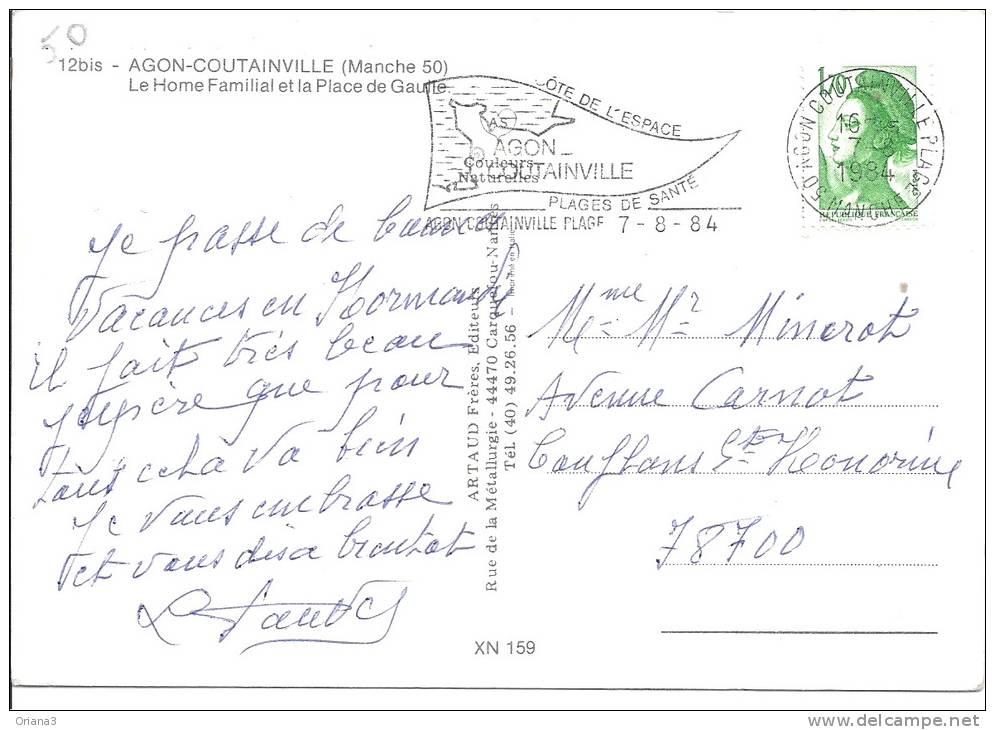 50
12bis - AGON-COUTAINVILLE (Manche 50)
Le Home Familial et la Place de Gaulle
CÔTE DE L'ESPACE
AGON
COUTAINVILLE
Couleurs
Naturelles
PLAGES DE SANTÉ
AGON COUTAINVILLE PLAGE 7-8-84
1,70
50 AGON COUTAINVILLE PLAGE
16
7-8
1984
MANCHE
RÉPUBLIQUE FRANÇAISE
Je passe de bonnes
Vacances en Normandy
il fait très beau
j'espère que pour
tous cela va bien
Je vous embrasse
et vous dis a bientot
ARTAUD Frères, Editeurs
Rue de la Métallurgie - 44470 Carquefou-Nantes
Tél. (40) 49.26.56 - Imprimé en Italie
Mme Mr Minerot
Avenue Carnot
Conflans Ste Honorine
78700
XN 159
Oriana3
www.delcampe.net